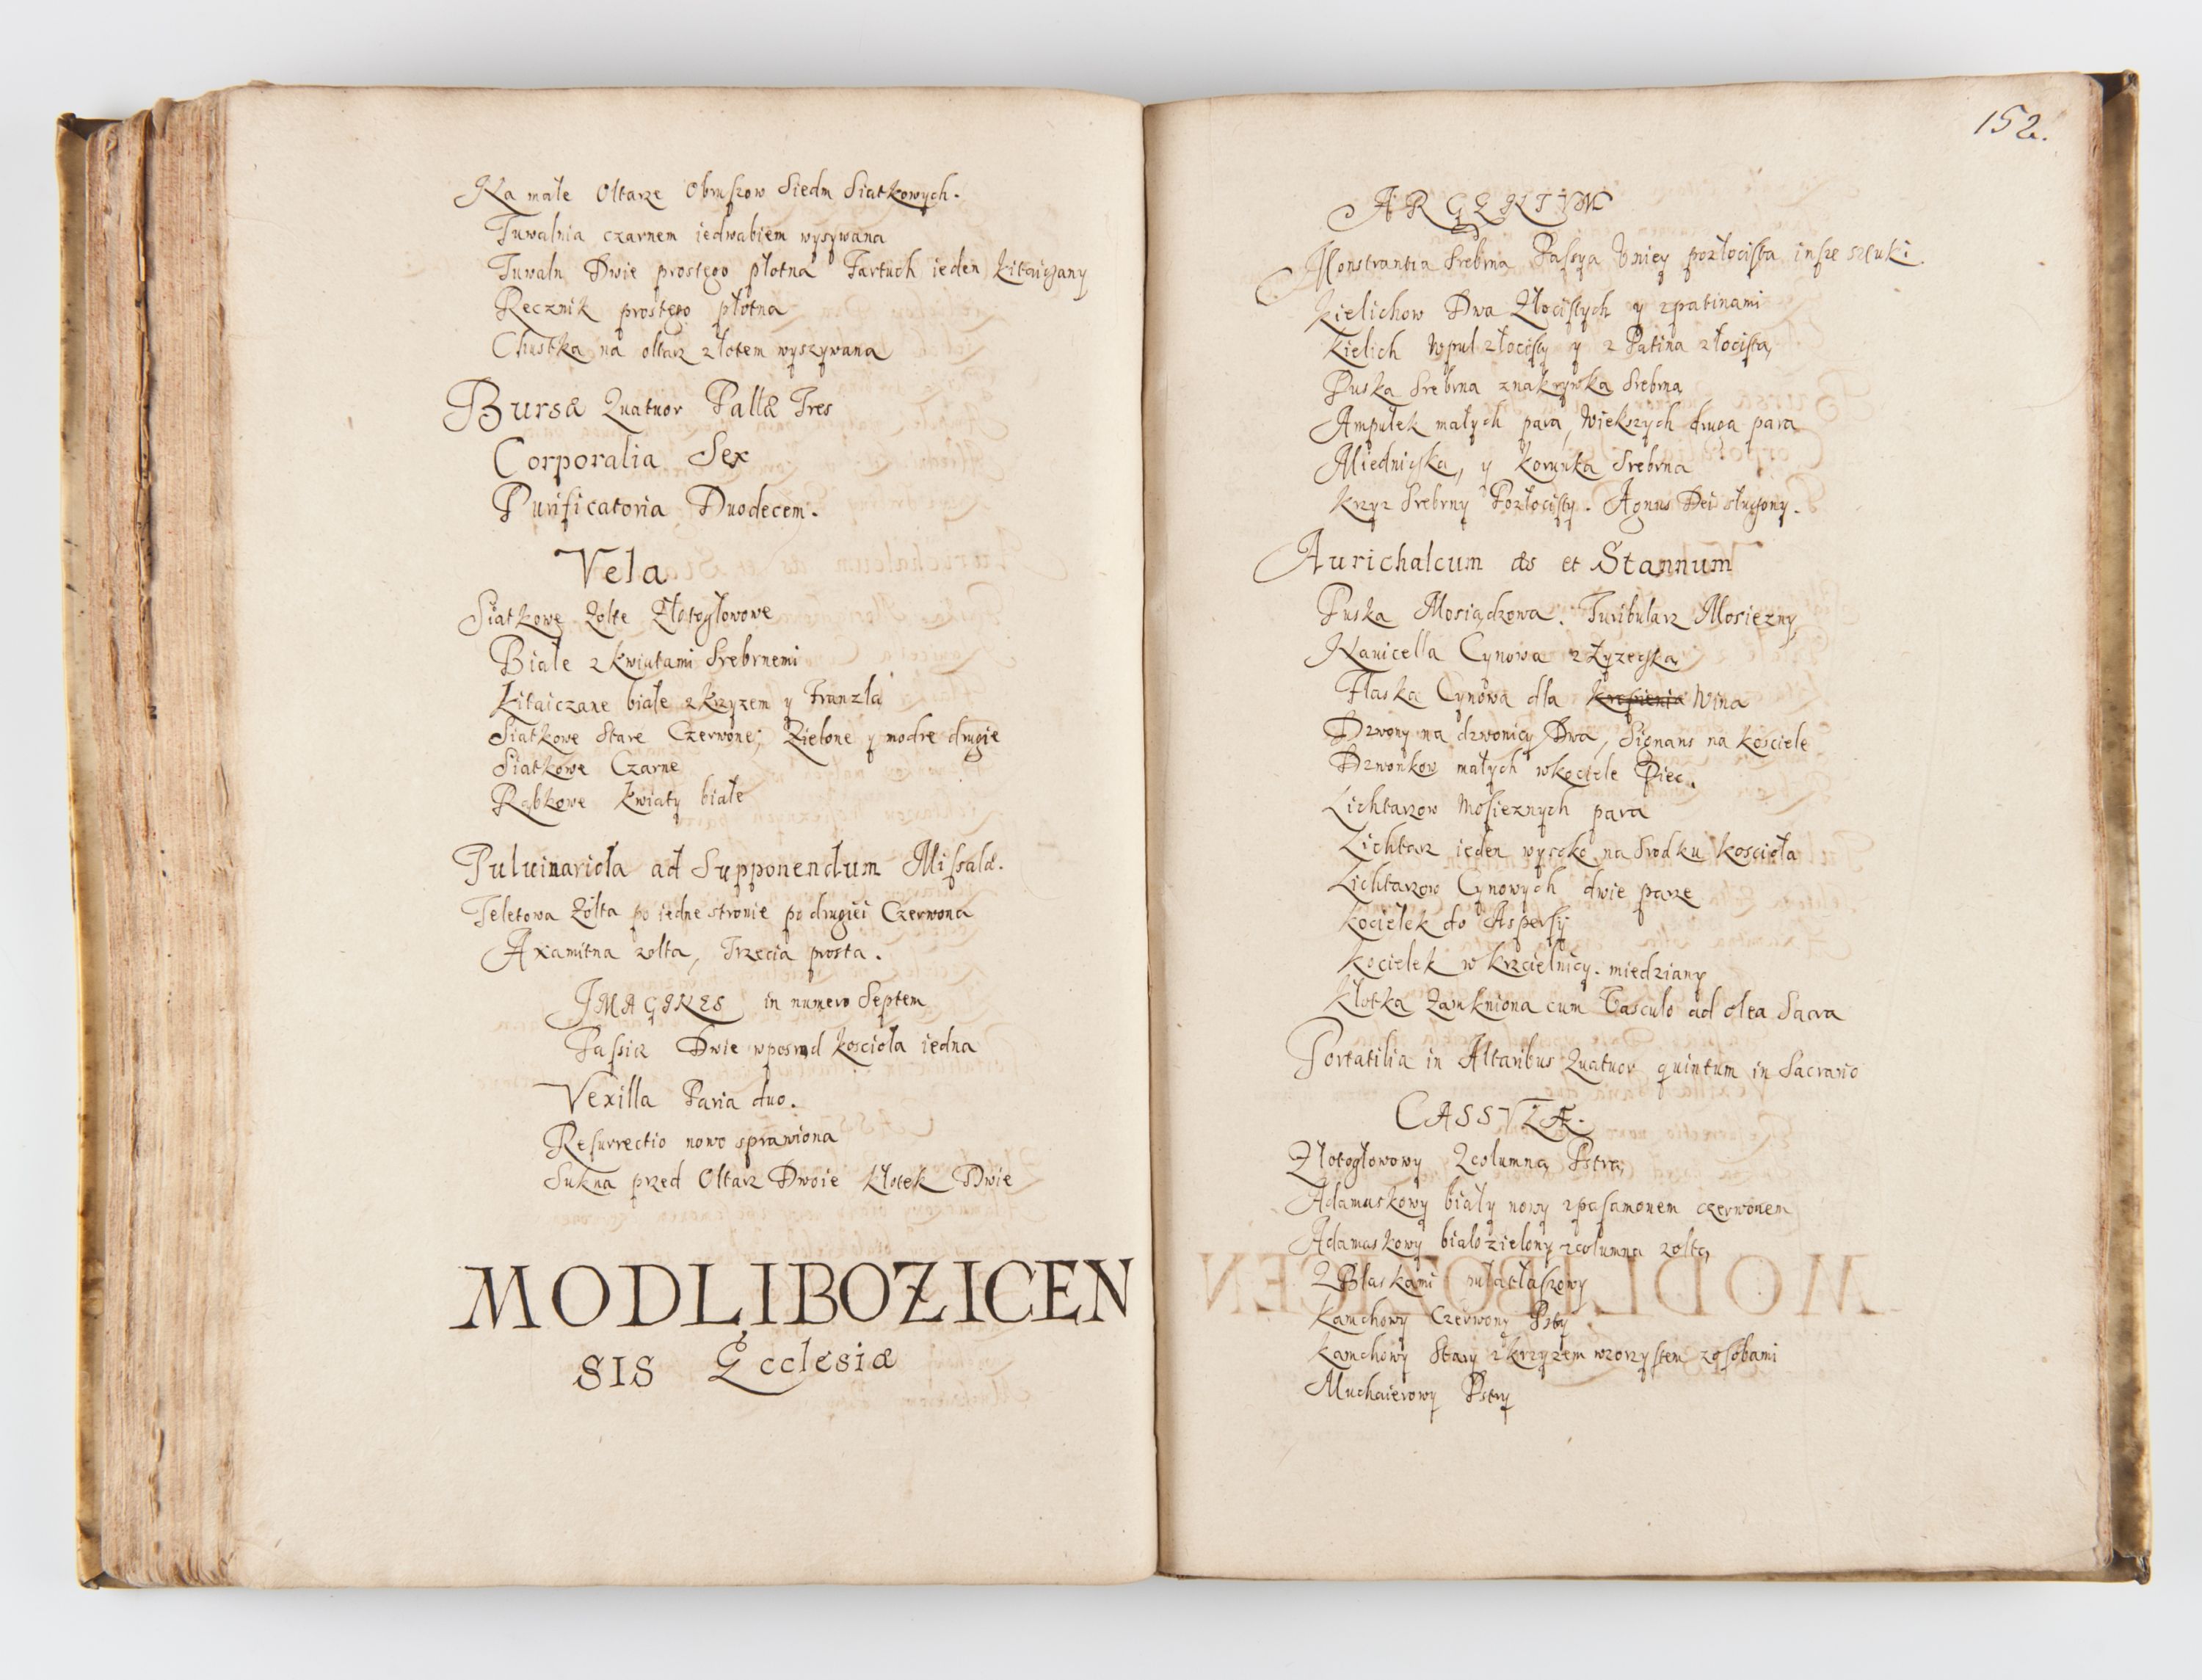 Na małe Ołtarze Obrusow Siedm Siatkowych.
Tuwalnia czarnem iedwabiem wysywana
Tuwaln Dwie prostego płotna Fartuch ieden kitaiczany
Recznik prostego płotna
Chustka na ołtarz złotem wyszywana
Bursæ Quatuor Pallæ Tres
Corporalia Sex
Purificatoria Duodecem.
Vela
Siatkowe Zolte Złotogłowowe
Białe z kwiatami Srebrnemi
Kitaiczane białe z krzyzem y Franzlą
Siatkowe Stare Czerwone; Zielone y modre drugie
Siatkowe Czarne
Rąbkowe kwiaty białe
Puluinariola ad Supponendum Missalæ.
Teletowa Zółta po iedne stronie po drugiei Czerwona
Axamitna zolta, Trzecia prosta.
IMAGINES in numero Septem
Passie Dwie wposrod kosciola iedna
Vexilla Paria duo.
Resurrectio nowo sprawiona
Sukna przed Ołtarz Dwoie kłotek Dwie
MODLIBOZICEN
SIS Ecclesiæ
152.
ARGENTVM
Monstrantia Srebrna Passya Vniey pozłocista insze sztuki.
Kielichow Dwa Złocistych y zpatinami
Kielich Wpul złocisty y z Patina złocista,
Puska Srebrna znakrywka Srebrna
Ampułek małych para, Wiekszych druga para
Miedniczka, y korunka Srebrna
Krzyz Srebrny Pozłocisty. Agnus Dei słuczony.
Aurichalcum æs et Stannum
Puska Mosiądzowa. Turibularz Mosiezny
Nauicella Cynowa z Łyzeczka
Flaska Cynowa dla krapienia Wina
Dzwony na dzwonicy Dwa, Signans na kosciele
Dzwonkow małych wkociele Piec.
Lichtarzow Mosieznych para
Lichtarz ieden wysoko na Srodku kosciola
Lichtarzow Cynowych dwie parze
Kociełek do Aspersij
Kociełek w krzcielnicy. miedziany
Kłotka Zamkniona cum Vasculo ad olea Sacra
Portatilia in Altaribus Quatuor quintum in Sacrario
CASSVLÆ.
Złotogłowowy Zcolumną Pstrą
Adamaskowy biały nowy zpasamonem czerwonem
Adamaskowy białozielony zcolumna zolta,
Kamchowy Czerwony Pstry
Kamchowy Stary z krzyzem wzorzystem zosobami
Muchaierowy Pstry